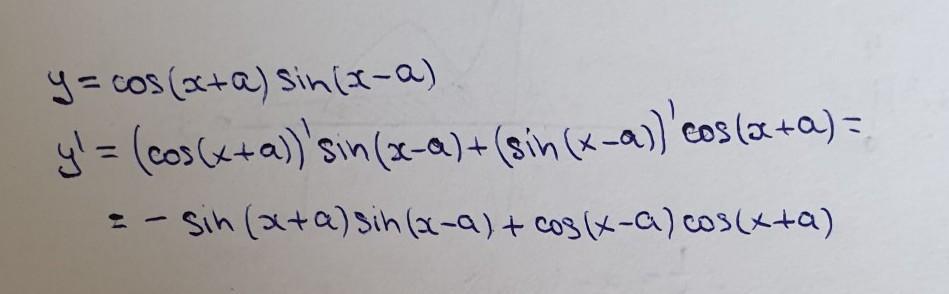 y = cos(x+a) sin(x-a)
y' = (cos(x+a))' sin(x-a) + (sin(x-a))' cos(x+a) =
= - sin(x+a) sin(x-a) + cos(x-a) cos(x+a)